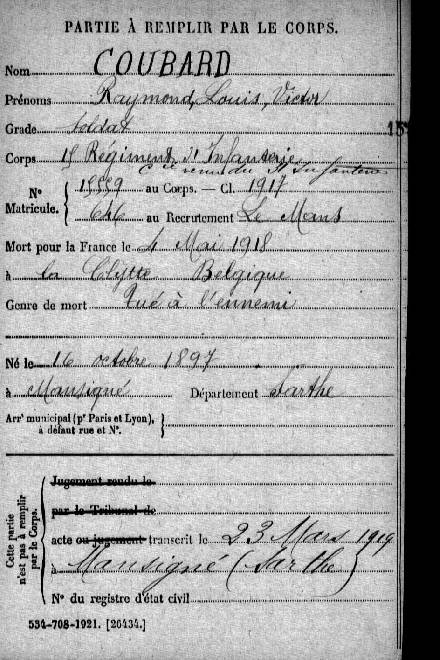 PARTIE À REMPLIR PAR LE CORPS.
Nom COUBARD
Prénoms Raymond, Louis, Victor
Grade soldat
Corps 15 Régiment d'Infanterie
Nº Matricule. au Corps. — Cl. 1917
646 au Recrutement Le Mans
Mort pour la France le 4 Mai 1918
à la Clytte Belgique
Genre de mort Tué à l'ennemi
Né le 16 octobre 1897
à Mansigné Département Sarthe
Arrᵗ municipal (pʳ Paris et Lyon),
à défaut rue et Nº.
Cette partie
n'est pas à remplir
par le Corps.
Jugement rendu le
par le Tribunal de
acte ou jugement transcrit le 23 Mars 1919
à Mansigné (Sarthe)
Nº du registre d'état civil
534-708-1921. [26434.]